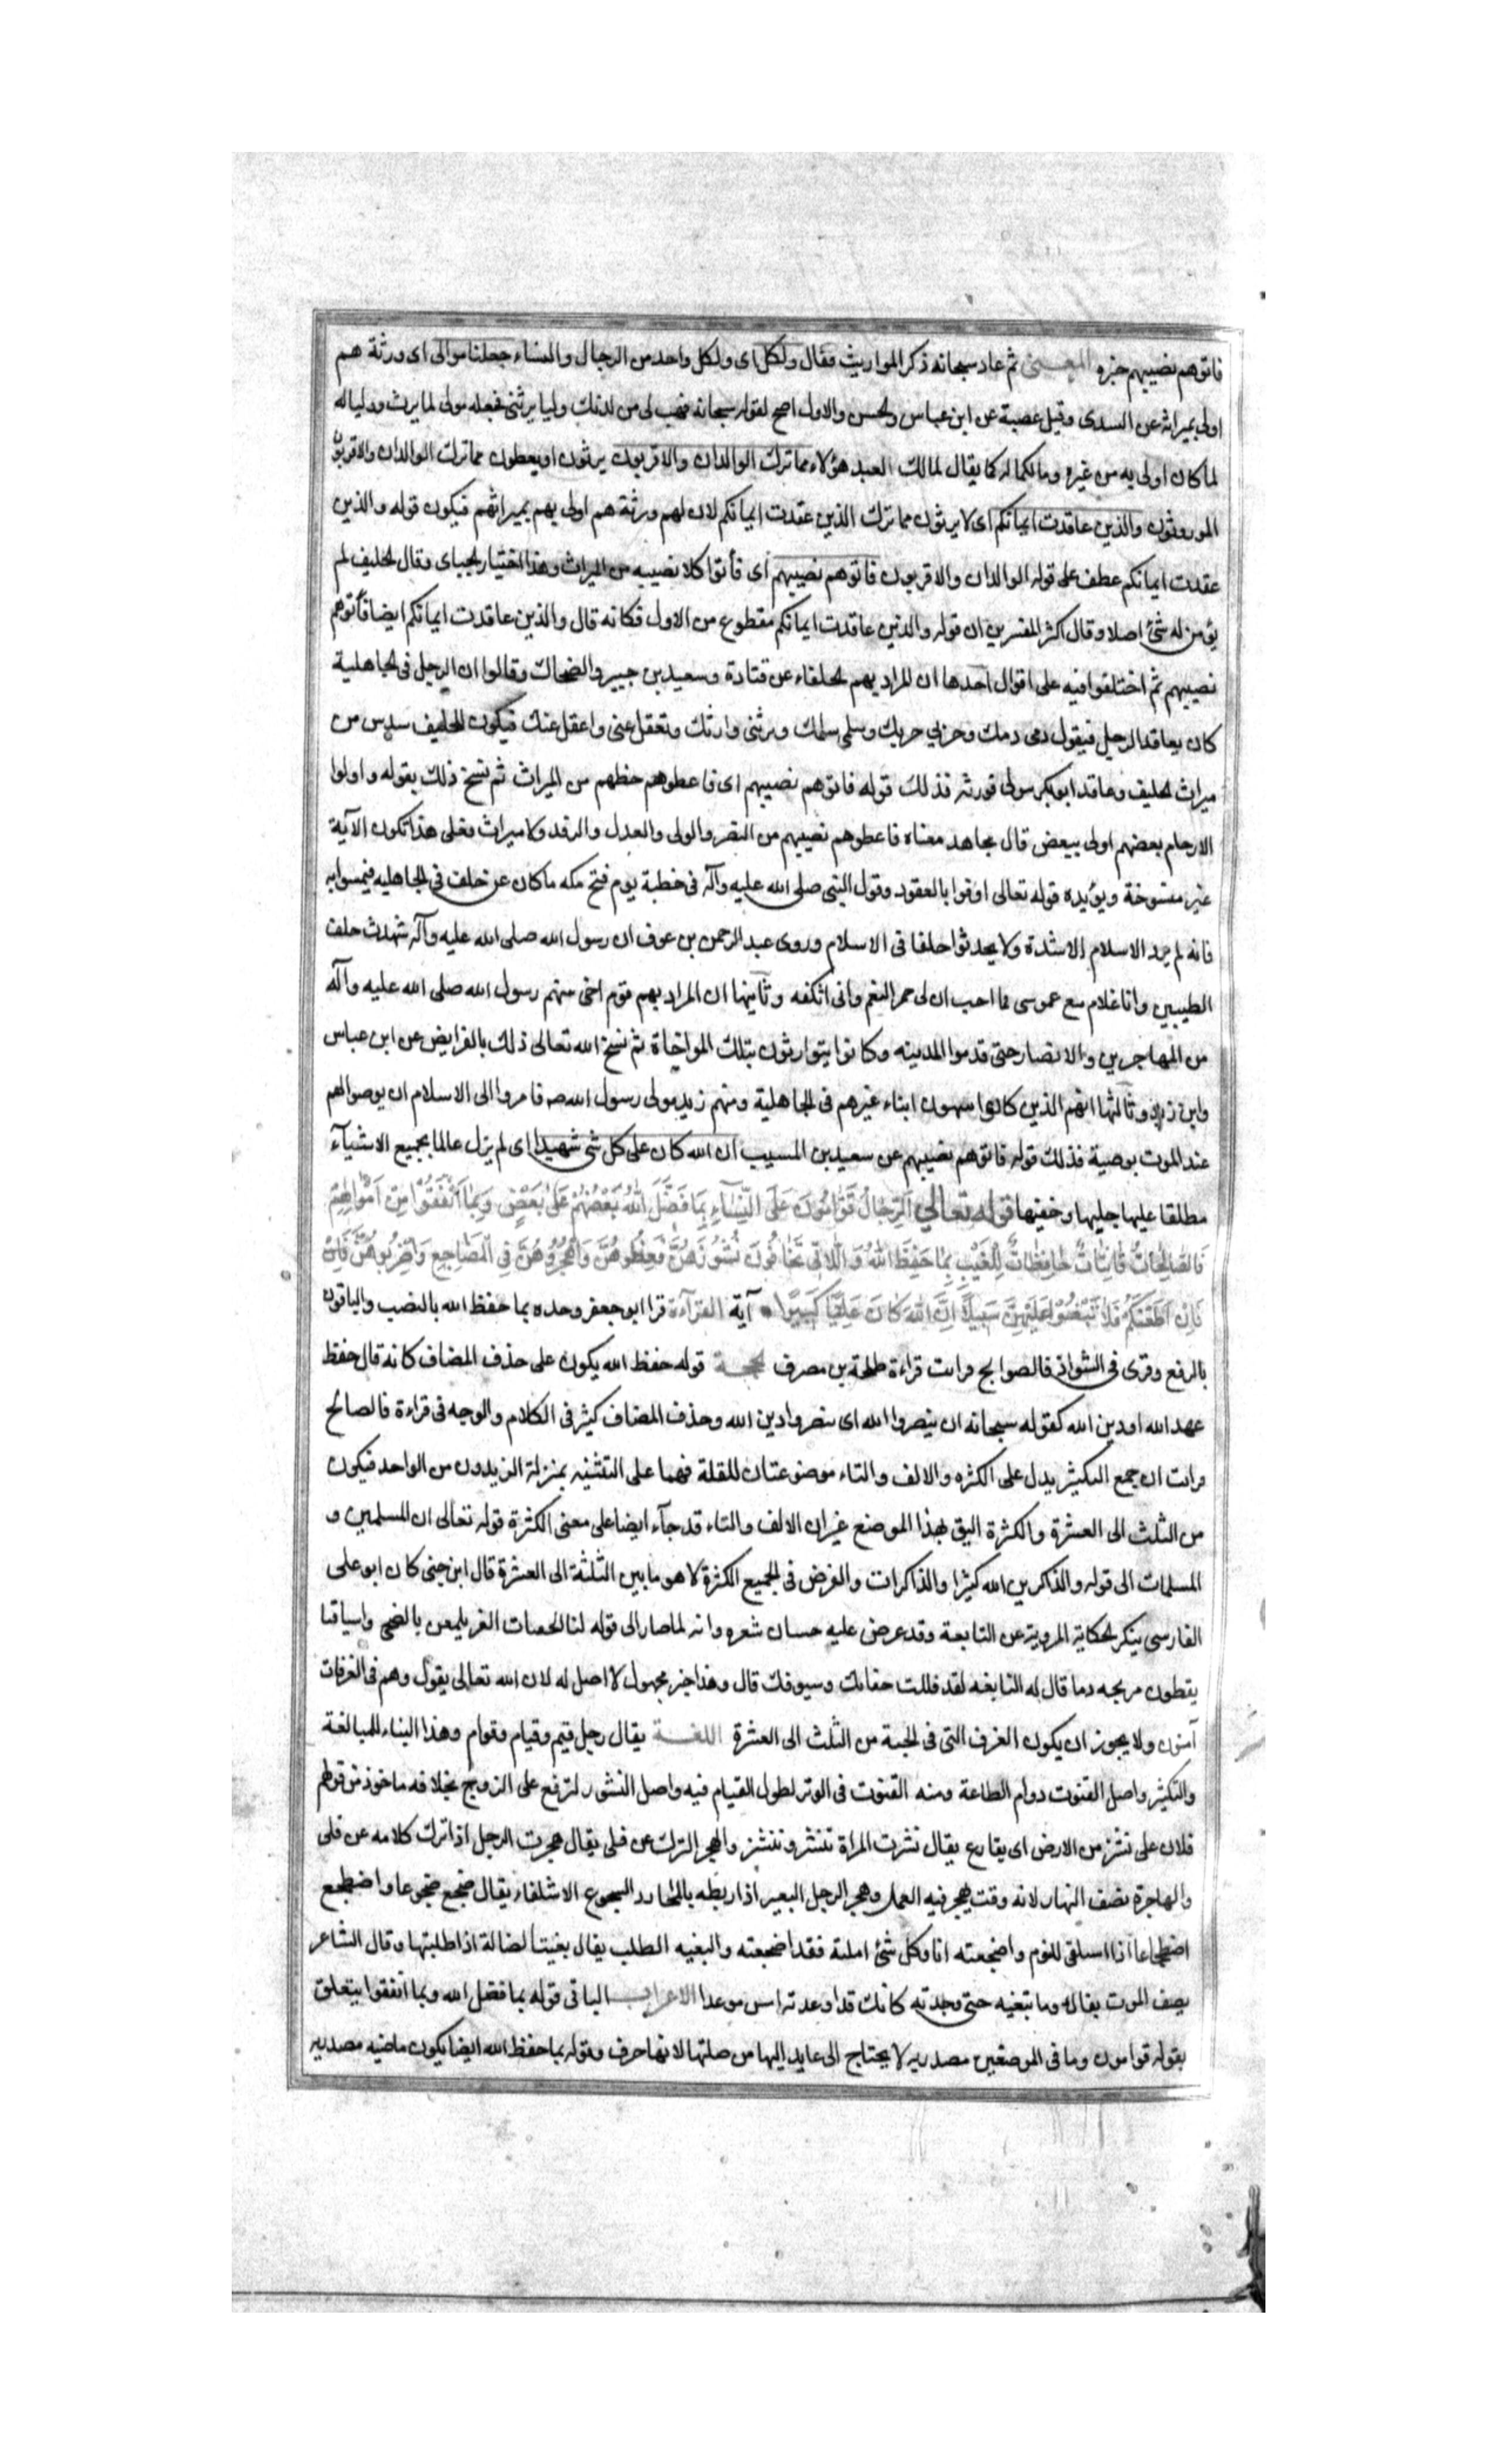 فاتوهم نصيبهم خبره المعنى ثم عاد سبحانه ذكر المواريث فقال ولكل اى ولكل واحد من الرجال والنساء جعلنا موالى اى ورثة هم
اولى بميراثه عن السدى وقيل عصبة عن ابن عباس والحسن والاول اصح لقوله سبحانه فهب لى من لدنك وليا يرثنى فجعله مولى لما يرث ووليا له
لما كان اولى به من غيره ومالكا له كما يقال لمالك العبد هؤلاء مما ترك الوالدان والاقربون يرثون او يعطون مما ترك الوالدان والاقربون
الموروثون والذين عاقدت ايمانكم اى لا يرثون مما ترك الذين عقدت ايمانكم لان لهم ورثة هم اولى بهم بميراثهم فيكون قوله والذين
عقدت ايمانكم عطف على قوله الوالدان والاقربون فاتوهم نصيبهم اى فأتوا كلا نصيبه من الميراث وهذا اختيار الجباى وقال الحليف لم
يؤمن له شئ اصلا وقال اكثر المفسرين ان قوله والذين عاقدت ايمانكم مقطوع من الاول فكانه قال والذين عاقدت ايمانكم ايضا فأتوهم
نصيبهم ثم اختلفوا فيه على اقوال احدها ان المراد بهم الحلفاء عن قتادة وسعيد بن جبير والضحاك وقالوا ان الرجل فى الجاهلية
كان يعاقد الرجل فيقول دمى دمك وحربي حربك وسلمى سلمك وترثنى وارثك وتعقل عنى واعقل عنك فيكون للحليف سدس من
ميراث الحليف وعاقد ابو بكر مولى فورثه فذلك قوله فاتوهم نصيبهم اى فاعطوهم حظهم من الميراث ثم نسخ ذلك بقوله واولوا
الارحام بعضهم اولى ببعض قال مجاهد معناه فاعطوهم نصيبهم من النصر والولى والعدل والرفد ولا ميراث فعلى هذا تكون الآية
غير منسوخة ويؤيده قوله تعالى اوفوا بالعقود وقول النبى صلى الله عليه وآله فى خطبة يوم فتح مكه ما كان عن حلف فى الجاهليه فتمسوا به
فانه لم يزد الاسلام الا شدة ولا تحدثوا حلفا فى الاسلام وروى عبد الرحمن بن عوف ان رسول الله صلى الله عليه وآله شهدت حلف
الطيبين وانا غلام مع عموسى فما احب ان لى حمر النعم وانى انكثه وثانيها ان المراد بهم قوم اخى منهم رسول الله صلى الله عليه وآله
من المهاجرين والانصار حتى قدموا المدينه وكانوا يتوارثون بتلك المواخاة ثم نسخ الله تعالى ذلك بالفرايض عن ابن عباس
وابن زيد وثالثها انهم الذين كانوا يتبنون ابناء غيرهم فى الجاهلية ومنهم زيد مولى رسول الله صه فامروا الى الاسلام ان يوصوا لهم
عند الموت بوصية فذلك قوله فاتوهم نصيبهم عن سعيد بن المسيب ان الله كان على كل شئ شهيدا اى لم يزل عالما بجميع الاشيآء
مطلقا عليها جليها وخفيها قوله تعالى اَلرِّجالُ قَوّامُونَ عَلَى النِّسآءِ بِما فَضَّلَ اللهُ بَعْضَهُمْ عَلى بَعْضٍ وَبِما اَنْفَقُوا مِنْ اَمْوالِهِمْ
فَالصّالِحاتُ قانِتاتٌ حافِظاتٌ لِلْغَيْبِ بِما حَفِظَ اللهُ وَاللّاتى تَخافُونَ نُشُوزَهُنَّ فَعِظُوهُنَّ وَاهْجُرُوهُنَّ فِى الْمَضاجِعِ وَاضْرِبُوهُنَّ فَاِنْ
فَاِنْ اَطَعْنَكُمْ فَلا تَبْغُوا عَلَيْهِنَّ سَبيلاً اِنَّ اللهَ كانَ عَلِيّا كَبيرًا آية القرآءة قرا ابو جعفر وحده بما حفظ الله بالنصب والباقون
بالرفع وقرى فى الشواذ فالصوالح قرانت قراءة طلحة بن مصرف الحجـة قوله حفظ الله يكون على حذف المضاف كانه قال حفظ
عهد الله او دين الله كقوله سبحانه ان ينصروا الله اى ينصروا دين الله وحذف المضاف كثير فى الكلام والوجه فى قراءة فالصالح
قرانت ان جمع التكثير يدل على الكثره والالف والتاء موضوعتان للقلة فهما على التثنيه بمنزلة الزيدون من الواحد فيكون
من الثلث الى العشرة والكثرة اليق بهذا الموضع غير ان الالف والتاء قد جآء ايضا على معنى الكثرة قوله تعالى ان المسلمين و
المسلمات الى قوله والذاكرين الله كثيرا والذاكرات والغرض فى الجميع الكثرة لا هو ما بين الثلثة الى العشرة قال ابن جنى كان ابو على
الفارسى ينكر الحكاية المروية عن النابغة وقد عرض عليه حسان شعره وانه لما صار الى قوله لنا الجفنات الغر يلمعن بالضحى واسيافنا
يقطرن من نجده دما قال له النابغه لقد قللت جفانك وسيوفك قال وهذا خبر مجهول لا اصل له لان الله تعالى يقول وهم فى الغرفات
آمنون ولا يجوز ان يكون الغرف التى فى الجنة من الثلث الى العشرة اللغـة يقال رجل قيم وقيام وقوام وهذا البناء للمبالغة
والتكثير واصل القنوت دوام الطاعة ومنه القنوت فى الوتر لطول القيام فيه واصل النشوز لترفع على الزوج بخلافه ماخوذ من قولهم
فلان على نشز من الارض اى يقارع يقال نشزت المراة تنشز وتنشز والهجر الترك عن قلى يقال هجرت الرجل اذا ترك كلامه عن قلى
والهاجرة نصف النهار لانه وقت يهجر فيه العمل وهجر الرجل البعير اذا ربطه بالهجار الاستلقاء يقال ضجع ضجوعا واضطجع
اضطجاعا اذا استلقى للنوم واضجعته انا وكل شئ املته فقد اضجعته والبغيه الطلب يقال بغيت الضالة اذا طلبتها وقال الشاعر
يصف الموت بغاله وما تبغيه حتى وجدته كانك قد اوعدته امس موعدا الاعراب الباقى قوله بما فضل الله وبما انفقوا يتعلق
بقوله قوامون وما فى الموضعين مصدريه لا يحتاج الى عايد اليها من صلتها لانها حرف وقوله بما حفظ الله ايضا يكون ماضيه مصدريه